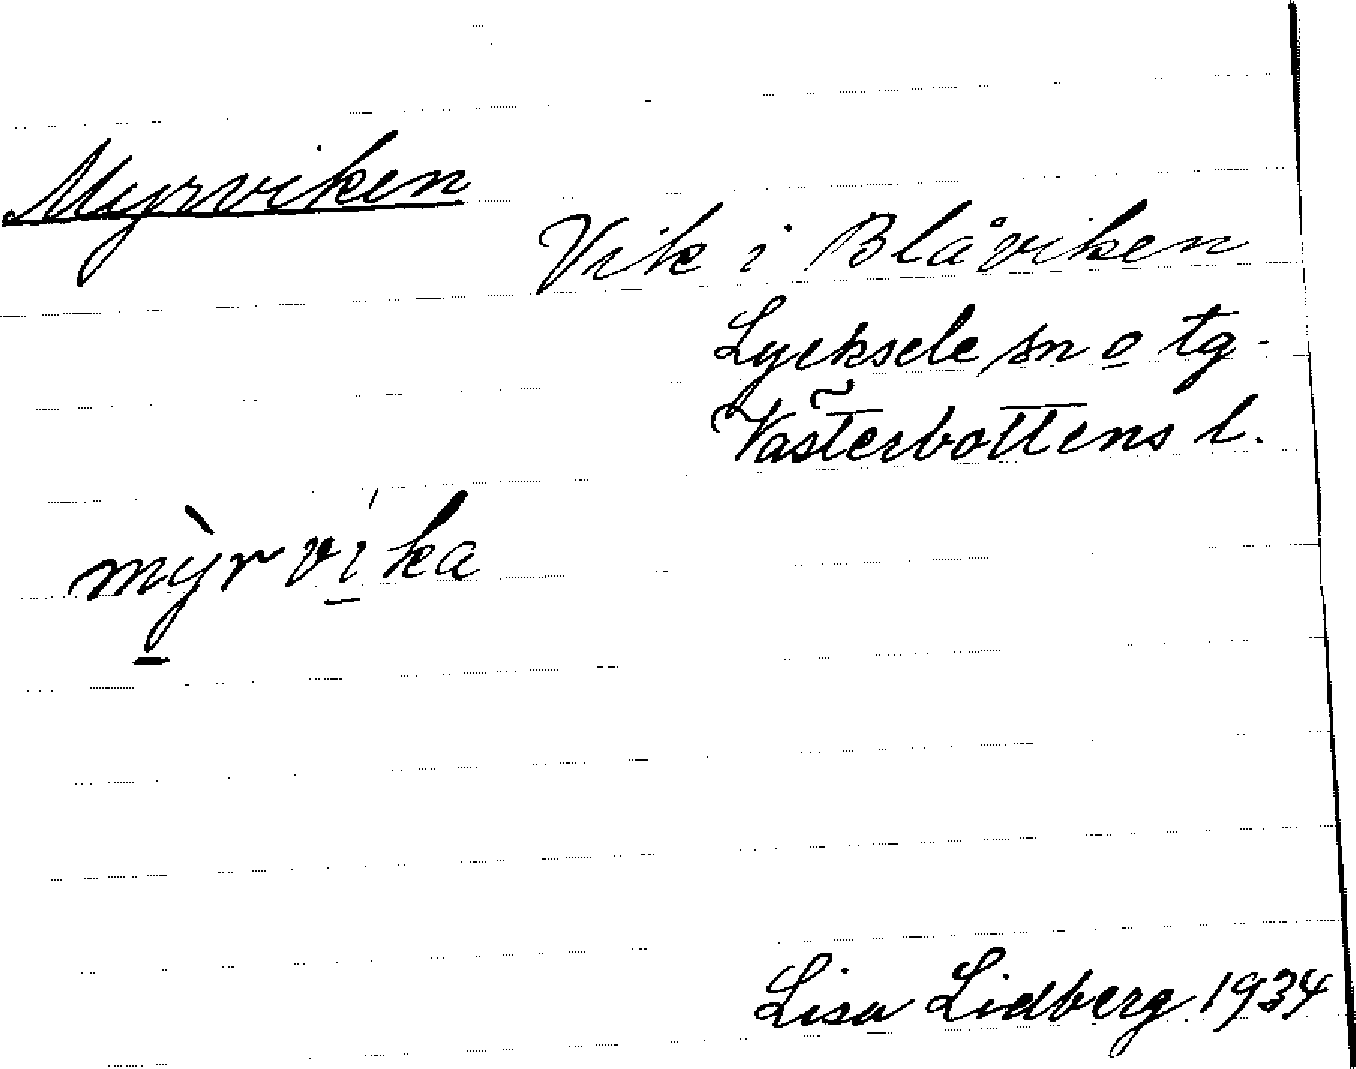 Myrviken
Vik i Blåviken
Lycksele sn o tg.
Västerbottens l.
mỳrvíka
Lisa Lidberg 1934